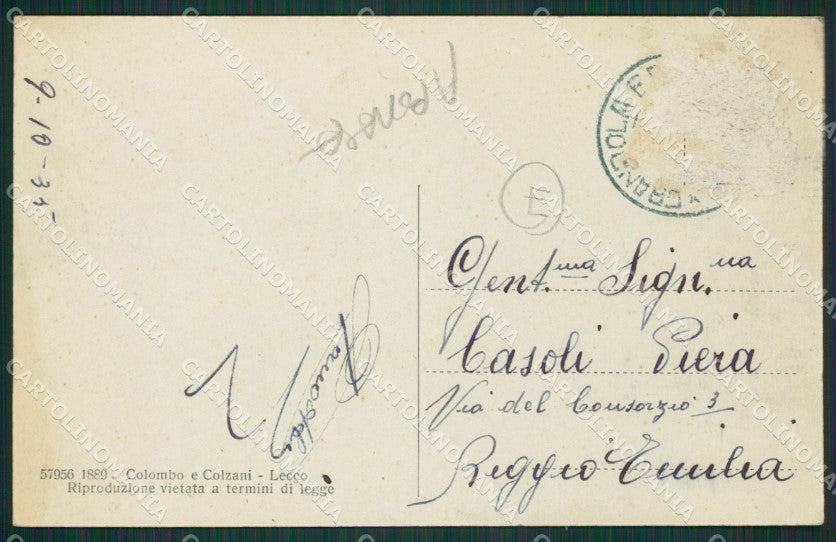 9-10-35
E
Gent.ma Sign.na
Casoli Piera
Via del Consorzio 3
Reggio Emilia
57956 1889. Colombo e Colzani - Lecco
Riproduzione vietata a termini di legge
CARTOLINOMANIA